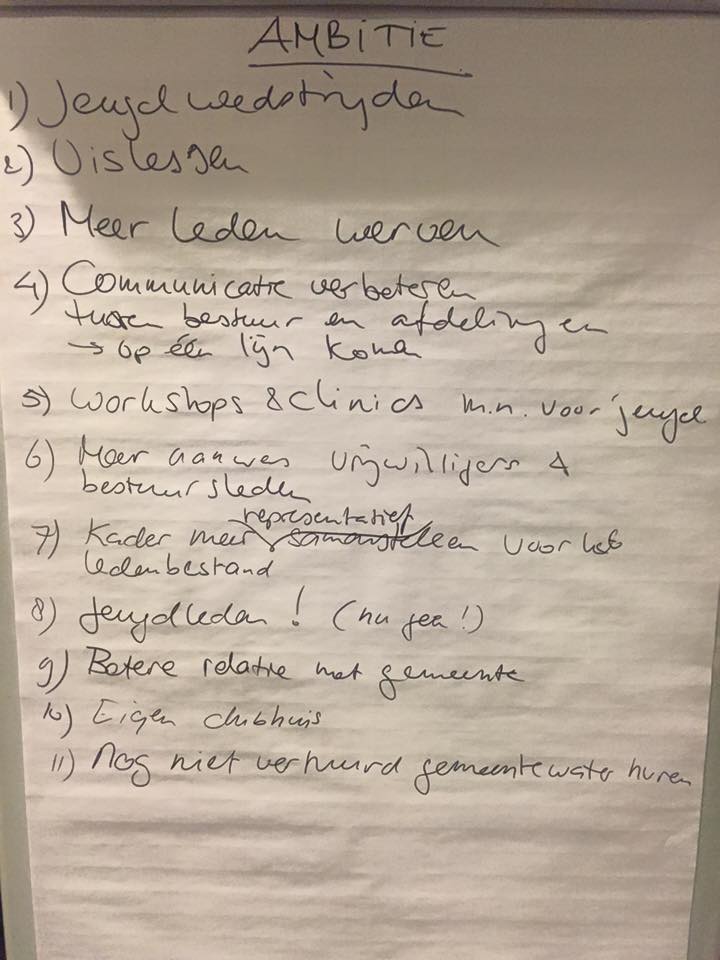 AMBITIE
1) Jeugdwedstrijden
2) Vislessen
3) Meer leden werven
4) Communicatie verbeteren
tussen bestuur en afdelingen
→ op één lijn komen
5) Workshops & clinics m.n. voor jeugd
6) Meer aanwas vrijwilligers &
bestuursleden
representatief
7) Kader meer samenstellen voor het
ledenbestand
8) Jeugdleden! (nu geen!)
9) Betere relatie met gemeente
10) Eigen clubhuis
11) Nog niet verhuurd gemeentewater huren